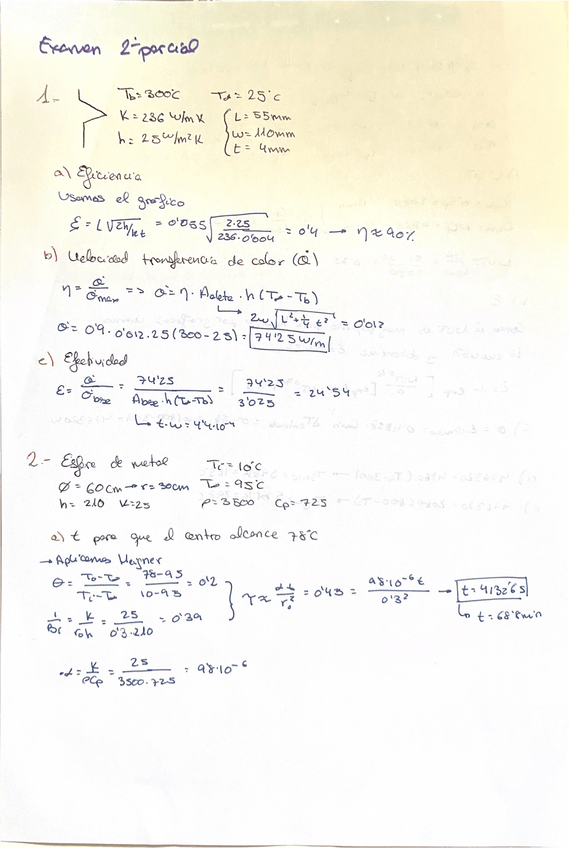 Examen 2º parcial
1.- Tb = 300°C T∞ = 25°C
K = 236 W/mK L = 55mm
h = 25 W/m²K w = 110mm
t = 4mm
a) Eficiencia
Usamos el gráfico
ξ = L√2h/kt = 0'055 √2·25/236·0'004 = 0'4 → η ≈ 90%
b) Velocidad transferencia de calor (Q̇)
η = Q̇/Q̇max => Q̇ = η · Aaleta · h (T∞ - Tb)
↳ 2w √L² + 1/4 t² = 0'012
Q̇ = 0'9 · 0'012 · 25 (300 - 25) = 74'25 W/m
c) Efectividad
ε = Q̇/Q̇base = 74'25/Abase · h (T∞ - Tb) = 74'25/3'025 = 24'54
↳ t · w = 4'4·10⁻⁴
2.- Esfere de metal Ti = 10°C
Ø = 60cm → r = 30cm T∞ = 95°C
h = 210 K = 25 ρ = 3500 Cp = 725
a) t para que el centro alcance 78°C
→ Aplicamos Heisner
θ = To - T∞/Ti - T∞ = 78 - 95/10 - 95 = 0'2
1/Bi = K/roh = 25/0'3·210 = 0'39
τ ≈ αt/ro² = 0'43 = 9'8·10⁻⁶t/0'3² → t = 4132'6 s
↳ t = 68'8 min
·α = K/ρCp = 25/3500·725 = 9'8·10⁻⁶